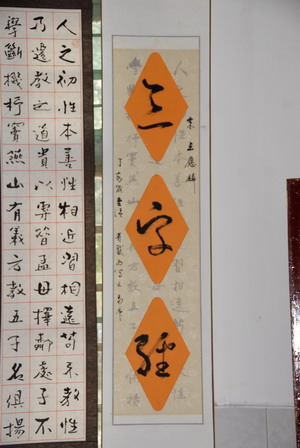 三字經
宋 王應麟
人之初性本善性相近習相遠苟不教性
乃遷教之道貴以專昔孟母擇鄰處子不
學斷機杼竇燕山有義方教五子名俱揚